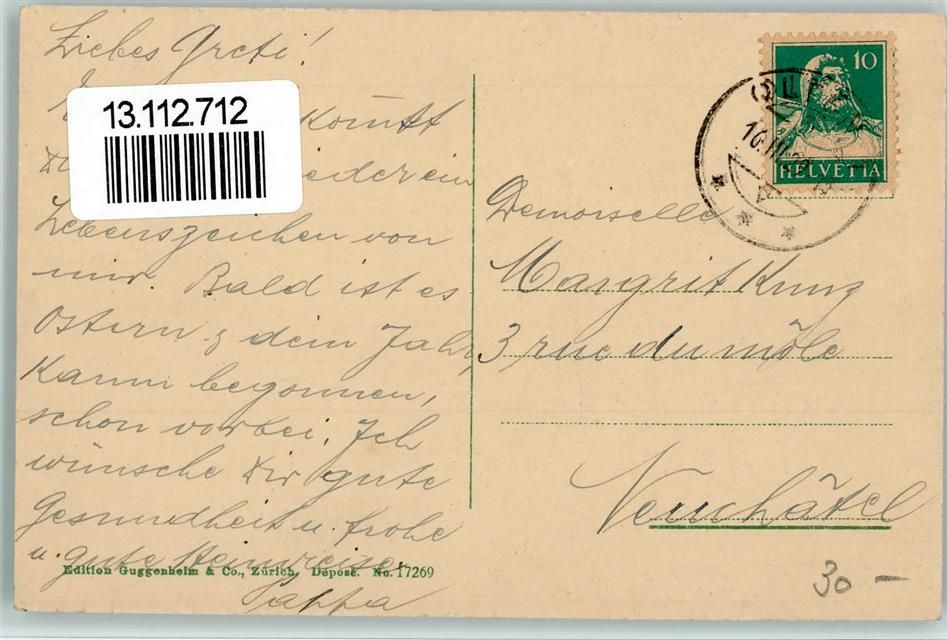 Liebes Greti!
kommt
wieder ein
Lebenszeichen von
mir. Bald ist es
Ostern & dein Jahr,
Kaum begonnen,
schon vorbei. Ich
wünsche Dir gute
Gesundheit u. frohe
u. gute Heimreise.
Pappa
13.112.712
Edition Guggenheim & Co., Zürich. Déposé. No. 17269
10
HELVETIA
Demoiselle
Margrit Kunz
3, rue du môle
Neuchâtel
30 —